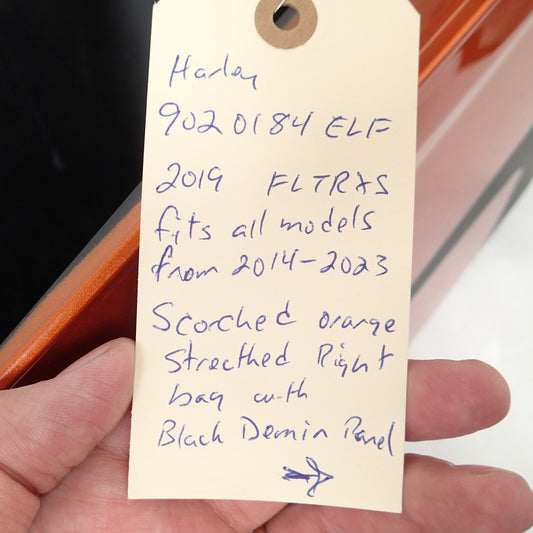 Harley
9020184 ELF
2019 FLTRXS
fits all models
from 2014-2023
Scorched orange
Strecthed Right
bag with
Black Demin Panel